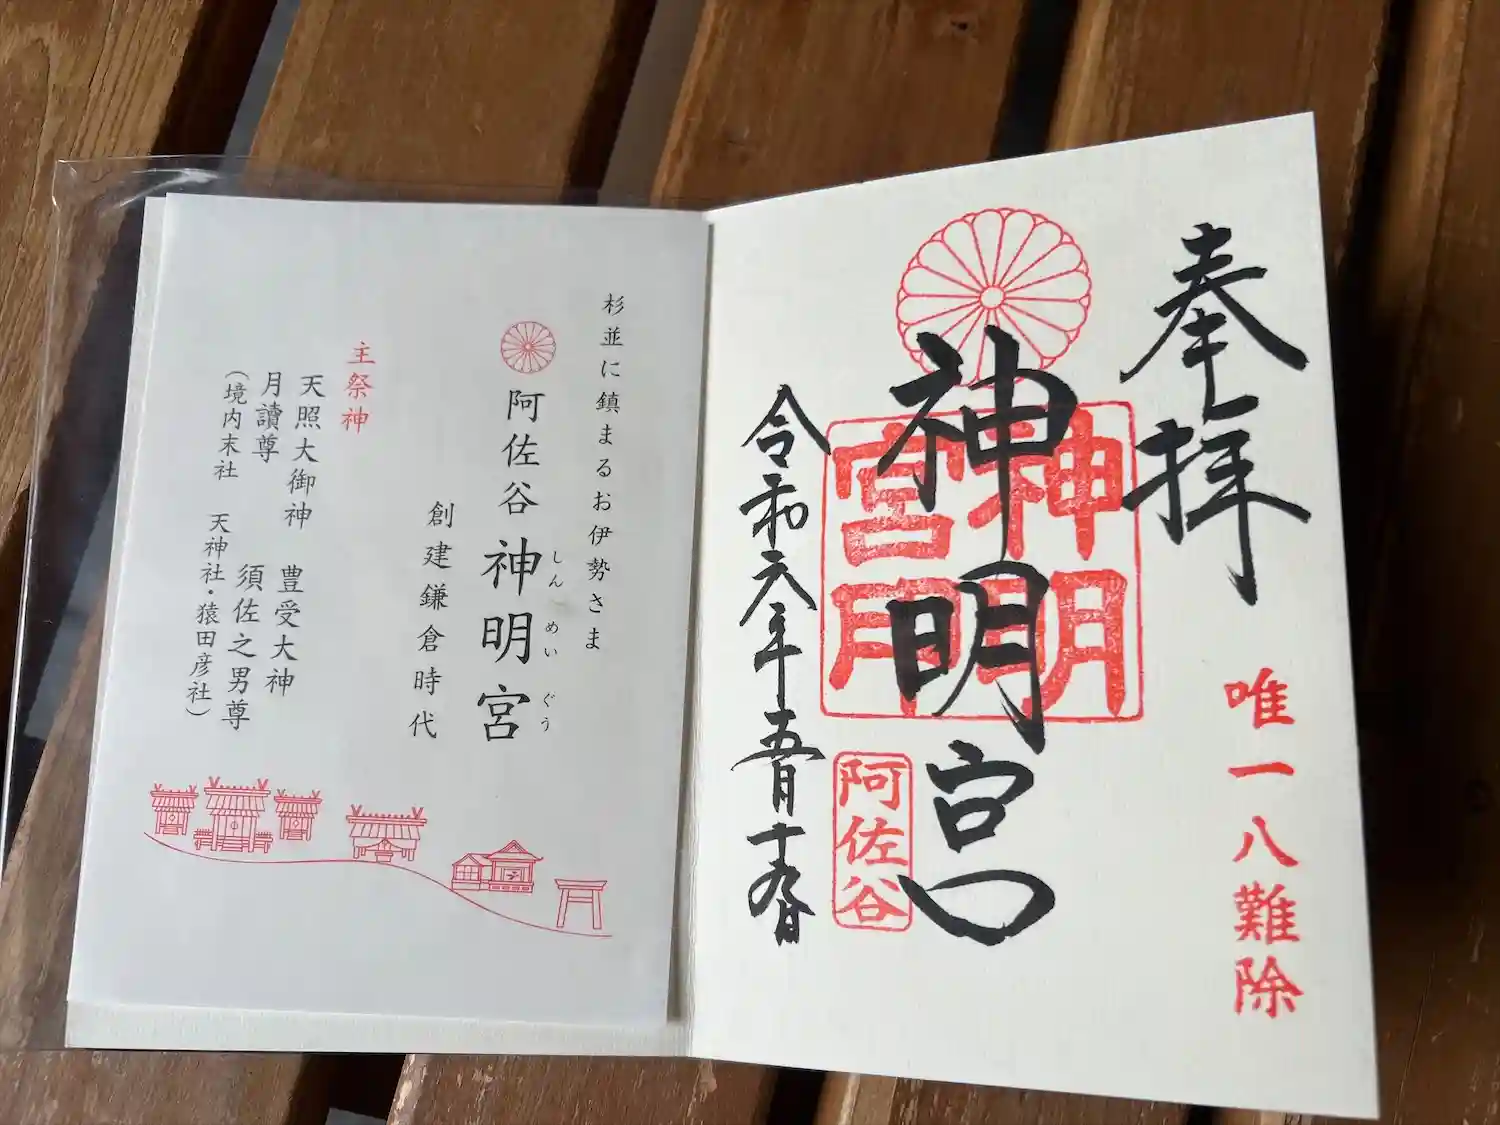 奉拝
唯一八難除
神明宮
神明
宮印
阿佐谷
令和六年五月十九日
杉並に鎮まるお伊勢さま
阿佐谷神明宮
しんめいぐう
創建鎌倉時代
主祭神
天照大御神 豊受大神
月讀尊 須佐之男尊
(境内末社 天神社・猿田彦社)